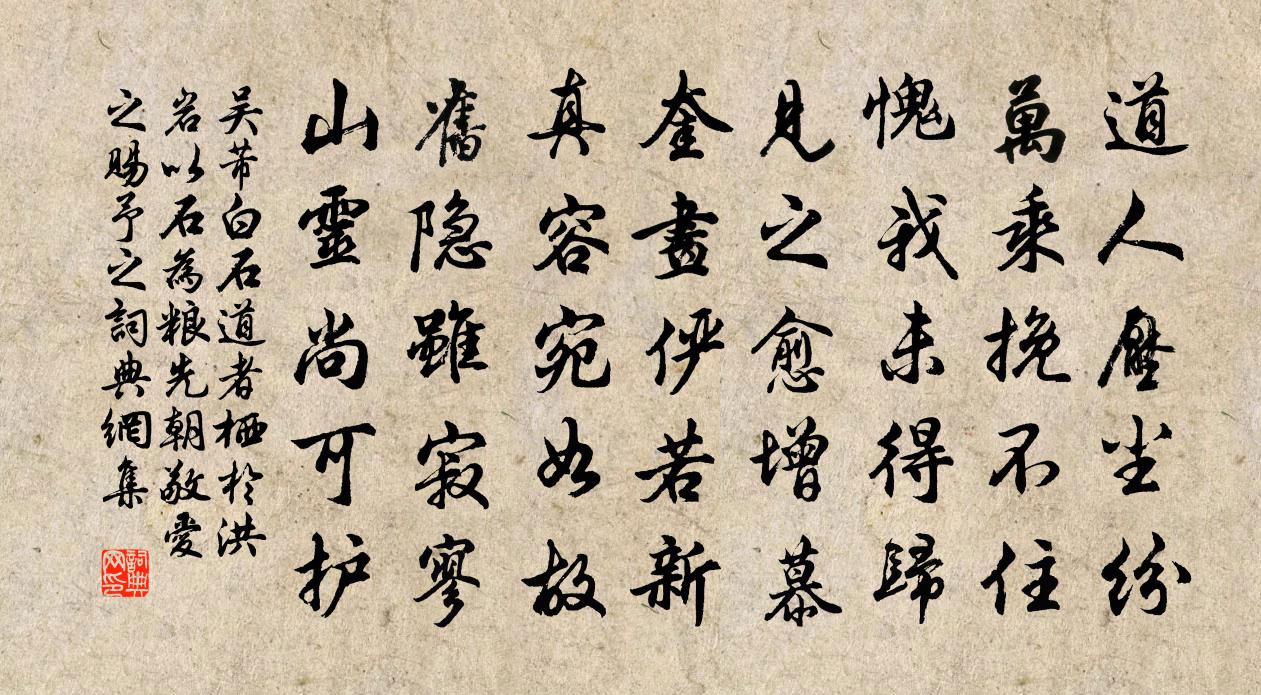 道人厭尘紛
萬乘挽不住
愧我未得歸
見之愈增慕
奎畫俨若新
真容宛如故
舊隐雖寂寥
山靈尚可护
吴芾白石道者栖於洪
岩以石為粮先朝敬愛
之賜予之詞典網集
詞典网印